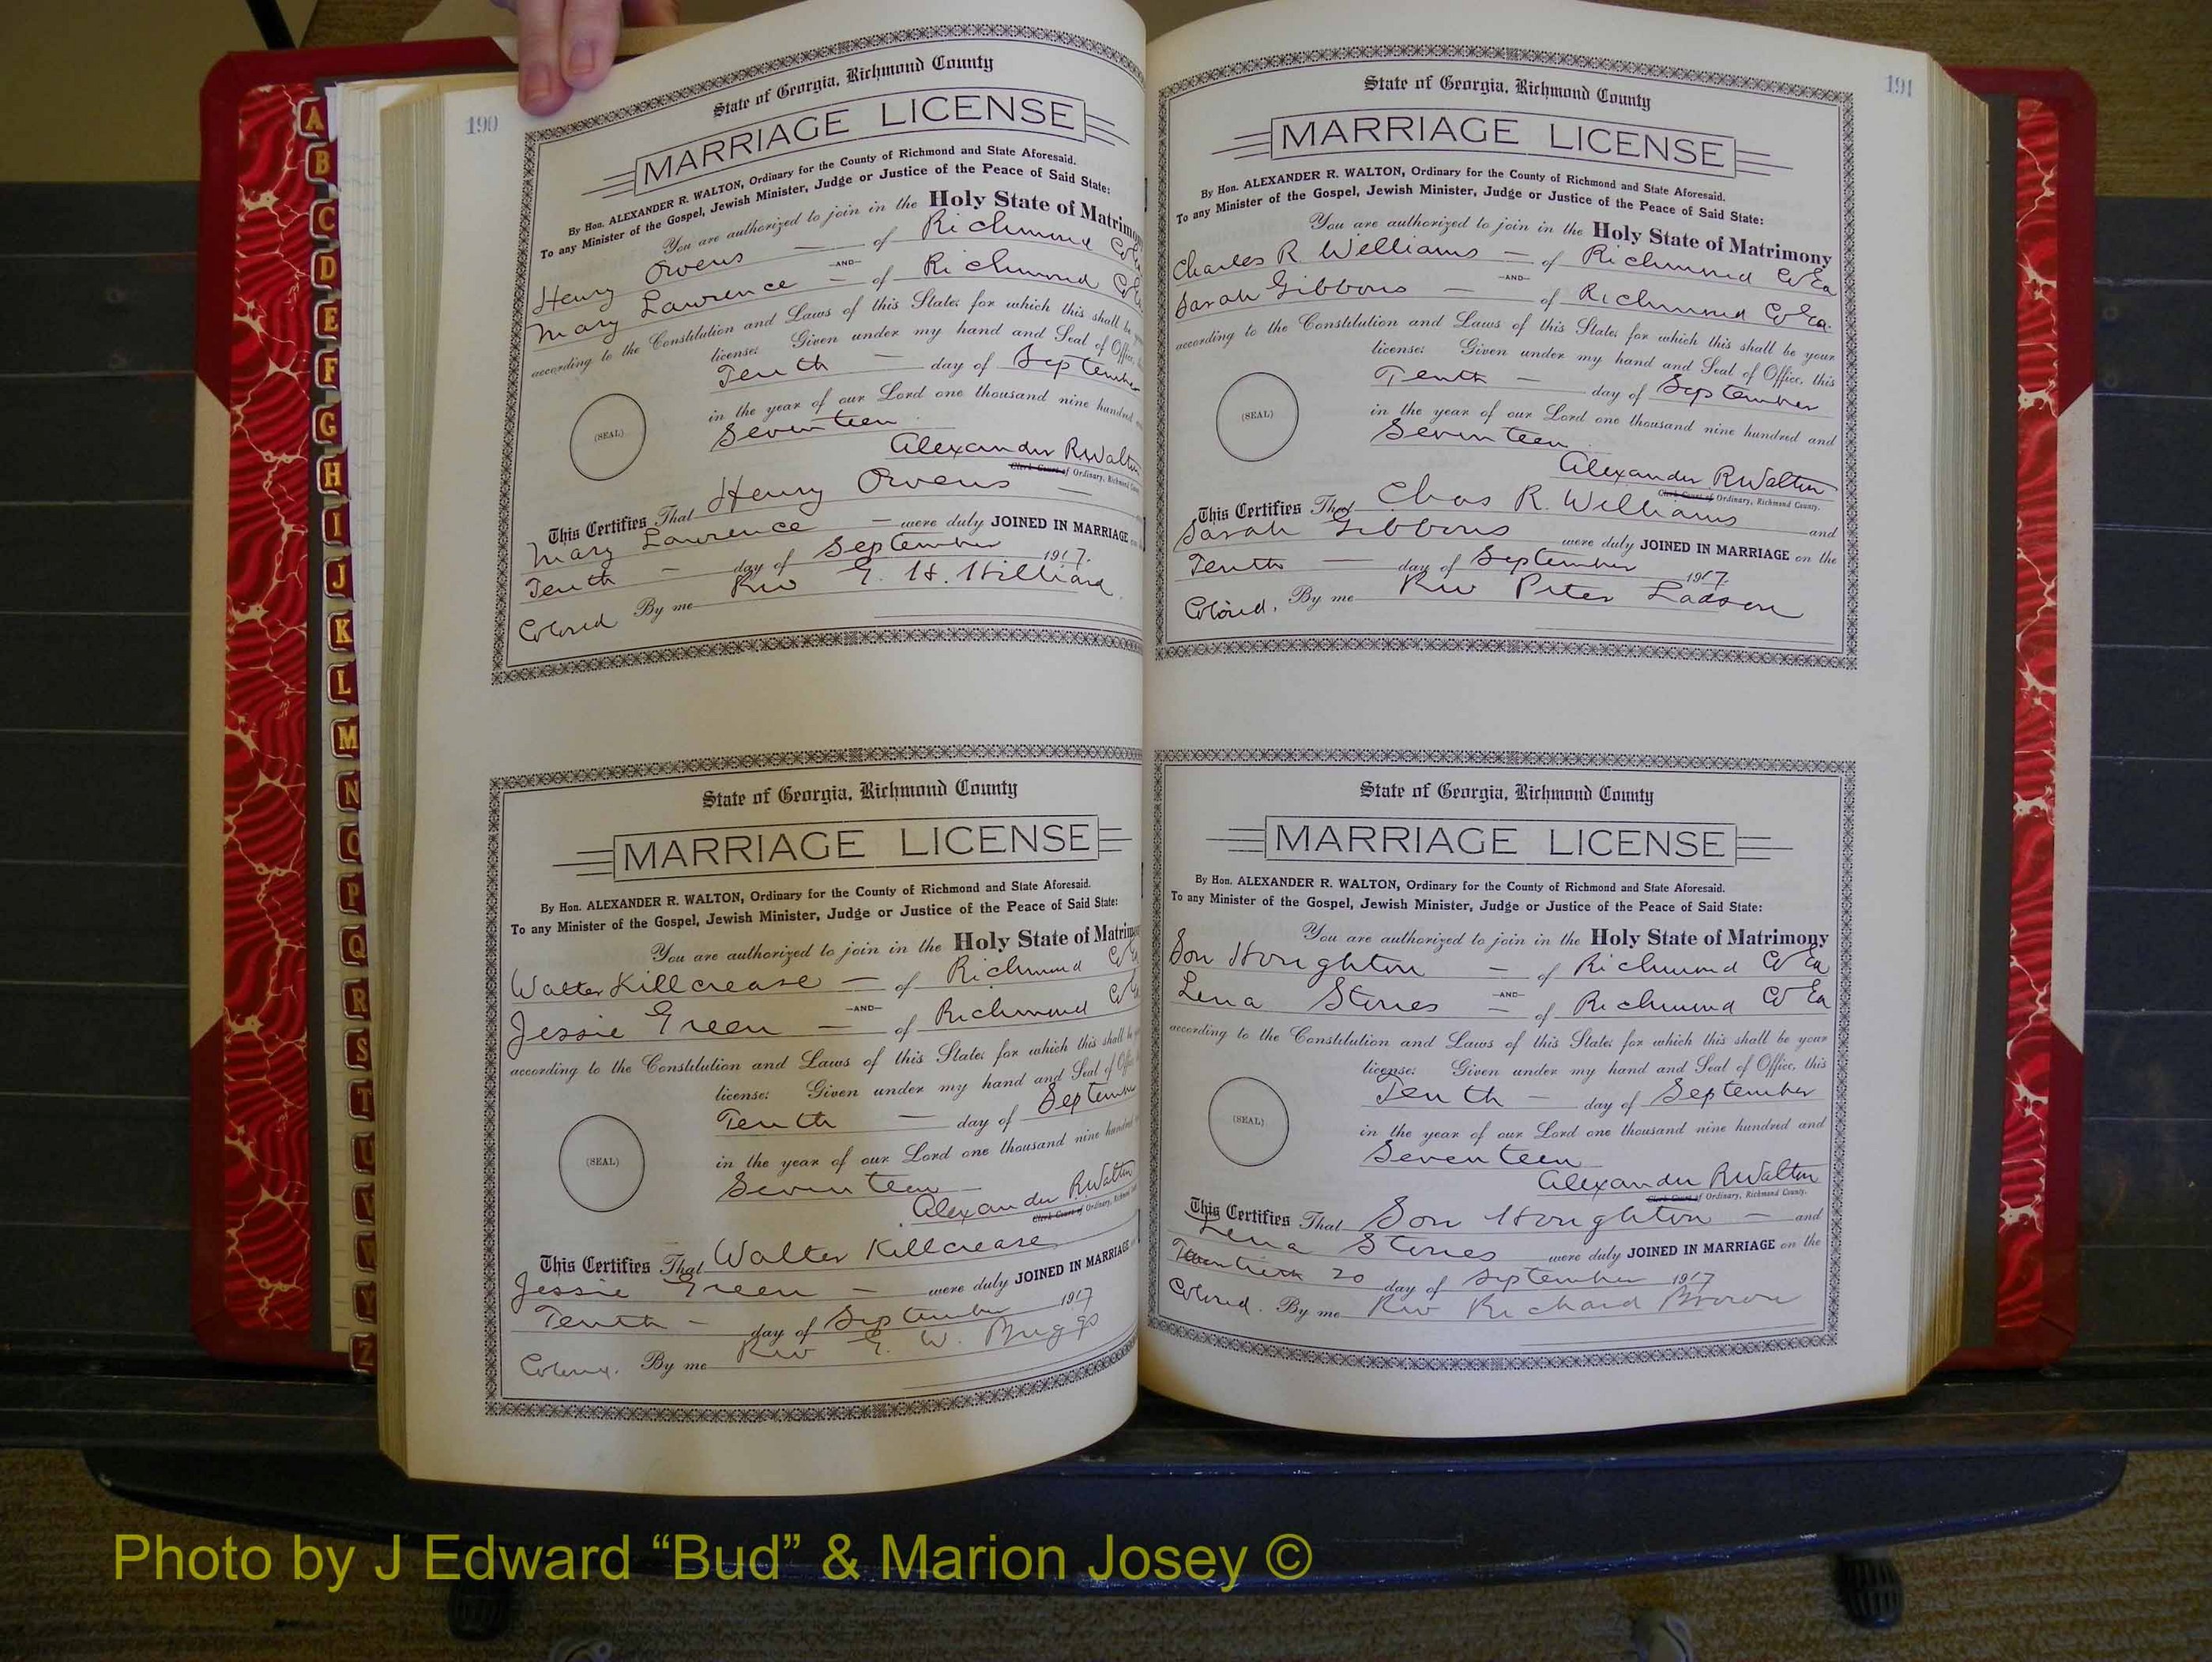 190
State of Georgia, Richmond County
MARRIAGE LICENSE
By Hon. ALEXANDER R. WALTON, Ordinary for the County of Richmond and State Aforesaid.
To any Minister of the Gospel, Jewish Minister, Judge or Justice of the Peace of Said State:
You are authorized to join in the Holy State of Matrimony
Henry Owens — of Richmond Co Ga
—AND—
Mary Lawrence — of Richmond Co Ga
according to the Constitution and Laws of this State, for which this shall be your
license: Given under my hand and Seal of Office, this
Tenth — day of September
(SEAL)
in the year of our Lord one thousand nine hundred and
Seventeen
Alexander R Walton
Clerk Court of Ordinary, Richmond County.
This Certifies That Henry Owens —
Mary Lawrence — were duly JOINED IN MARRIAGE on
Tenth — day of September 1917.
Colored By me Rev G. H. Hilliard.
State of Georgia, Richmond County
MARRIAGE LICENSE
By Hon. ALEXANDER R. WALTON, Ordinary for the County of Richmond and State Aforesaid.
To any Minister of the Gospel, Jewish Minister, Judge or Justice of the Peace of Said State:
You are authorized to join in the Holy State of Matrimony
Walter Killcrease — of Richmond Co Ga
—AND—
Jessie Green — of Richmond Co Ga
according to the Constitution and Laws of this State, for which this shall be your
license: Given under my hand and Seal of Office
Tenth — day of September
(SEAL)
in the year of our Lord one thousand nine hundred
Seventeen
Alexander R Walton
Clerk Court of Ordinary, Richmond
This Certifies That Walter Killcrease
Jessie Green — were duly JOINED IN MARRIAGE
Tenth — day of September 1917
Colored. By me Rev G. W. Buggs
191
State of Georgia, Richmond County
MARRIAGE LICENSE
By Hon. ALEXANDER R. WALTON, Ordinary for the County of Richmond and State Aforesaid.
To any Minister of the Gospel, Jewish Minister, Judge or Justice of the Peace of Said State:
You are authorized to join in the Holy State of Matrimony
Charles R Williams — of Richmond Co Ga
—AND—
Sarah Gibbons — of Richmond Co Ga.
according to the Constitution and Laws of this State, for which this shall be your
license: Given under my hand and Seal of Office, this
Tenth — day of September
(SEAL)
in the year of our Lord one thousand nine hundred and
Seventeen
Alexander R Walton
Clerk Court of Ordinary, Richmond County.
This Certifies That Chas R. Williams
Sarah Gibbons and
were duly JOINED IN MARRIAGE on the
Tenth — day of September 1917.
Colored. By me Rev Peter Ladson
State of Georgia, Richmond County
MARRIAGE LICENSE
By Hon. ALEXANDER R. WALTON, Ordinary for the County of Richmond and State Aforesaid.
To any Minister of the Gospel, Jewish Minister, Judge or Justice of the Peace of Said State:
You are authorized to join in the Holy State of Matrimony
Son Houghton — of Richmond Co Ga
—AND—
Lena Stones — of Richmond Co Ga
according to the Constitution and Laws of this State, for which this shall be your
license: Given under my hand and Seal of Office, this
Tenth — day of September
(SEAL)
in the year of our Lord one thousand nine hundred and
Seventeen
Alexander R Walton
Clerk Court of Ordinary, Richmond County.
This Certifies That Son Houghton — and
Lena Stones were duly JOINED IN MARRIAGE on the
20 day of September 1917
Colored. By me Rev Richard Brown
A
B
C
D
E
F
G
H
I
J
K
L
M
N
O
P
Q
R
S
T
U
V
W
Y
Z
Photo by J Edward “Bud” & Marion Josey ©